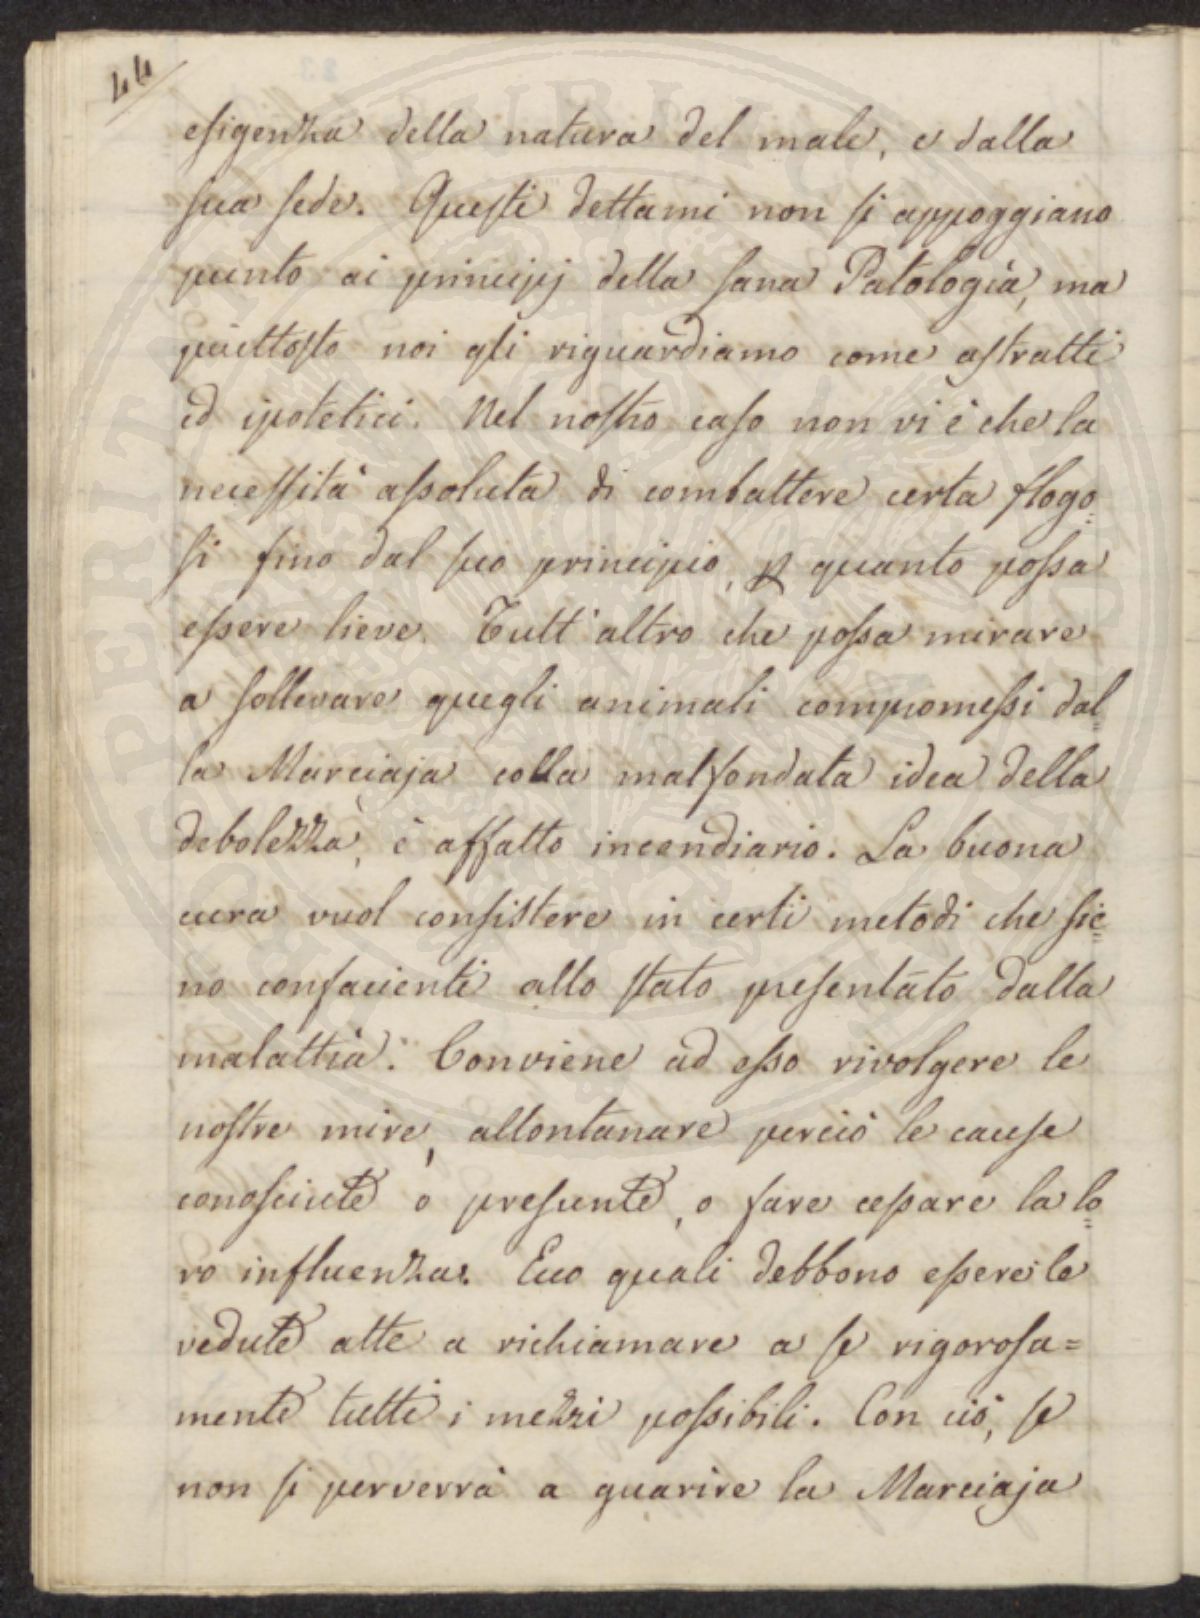 44
esigenza della natura del male, e dalla
sua sede. Questi dettami non si appoggiano
punto ai principj della sana Patologia, ma
piuttosto noi gli riguardiamo come astratti
ed ipotetici. Nel nostro caso non vi è che la
necessità assoluta di combattere certa flogo=
si fino dal suo principio, p quanto possa
essere lieve. Tutt'altro che possa mirare
a sollevare quegli animali compromessi dal=
la Marciaja colla malfondata idea della
debolezza, è affatto incendiario. La buona
cura vuol consistere in certi metodi che sie=
no confacienti allo stato presentato dalla
malattia. Conviene ad esso rivolgere le
nostre mire, allontanare perciò le cause
conosciute o presunte, o fare cessare la lo=
ro influenza. Ecco quali debbono essere le
vedute atte a richiamare a se rigorosa=
mente tutti i mezzi possibili. Con ciò, se
non si perverrà a guarire la Marciaja